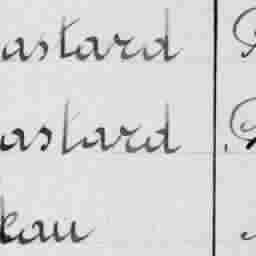 astard
astard
eau